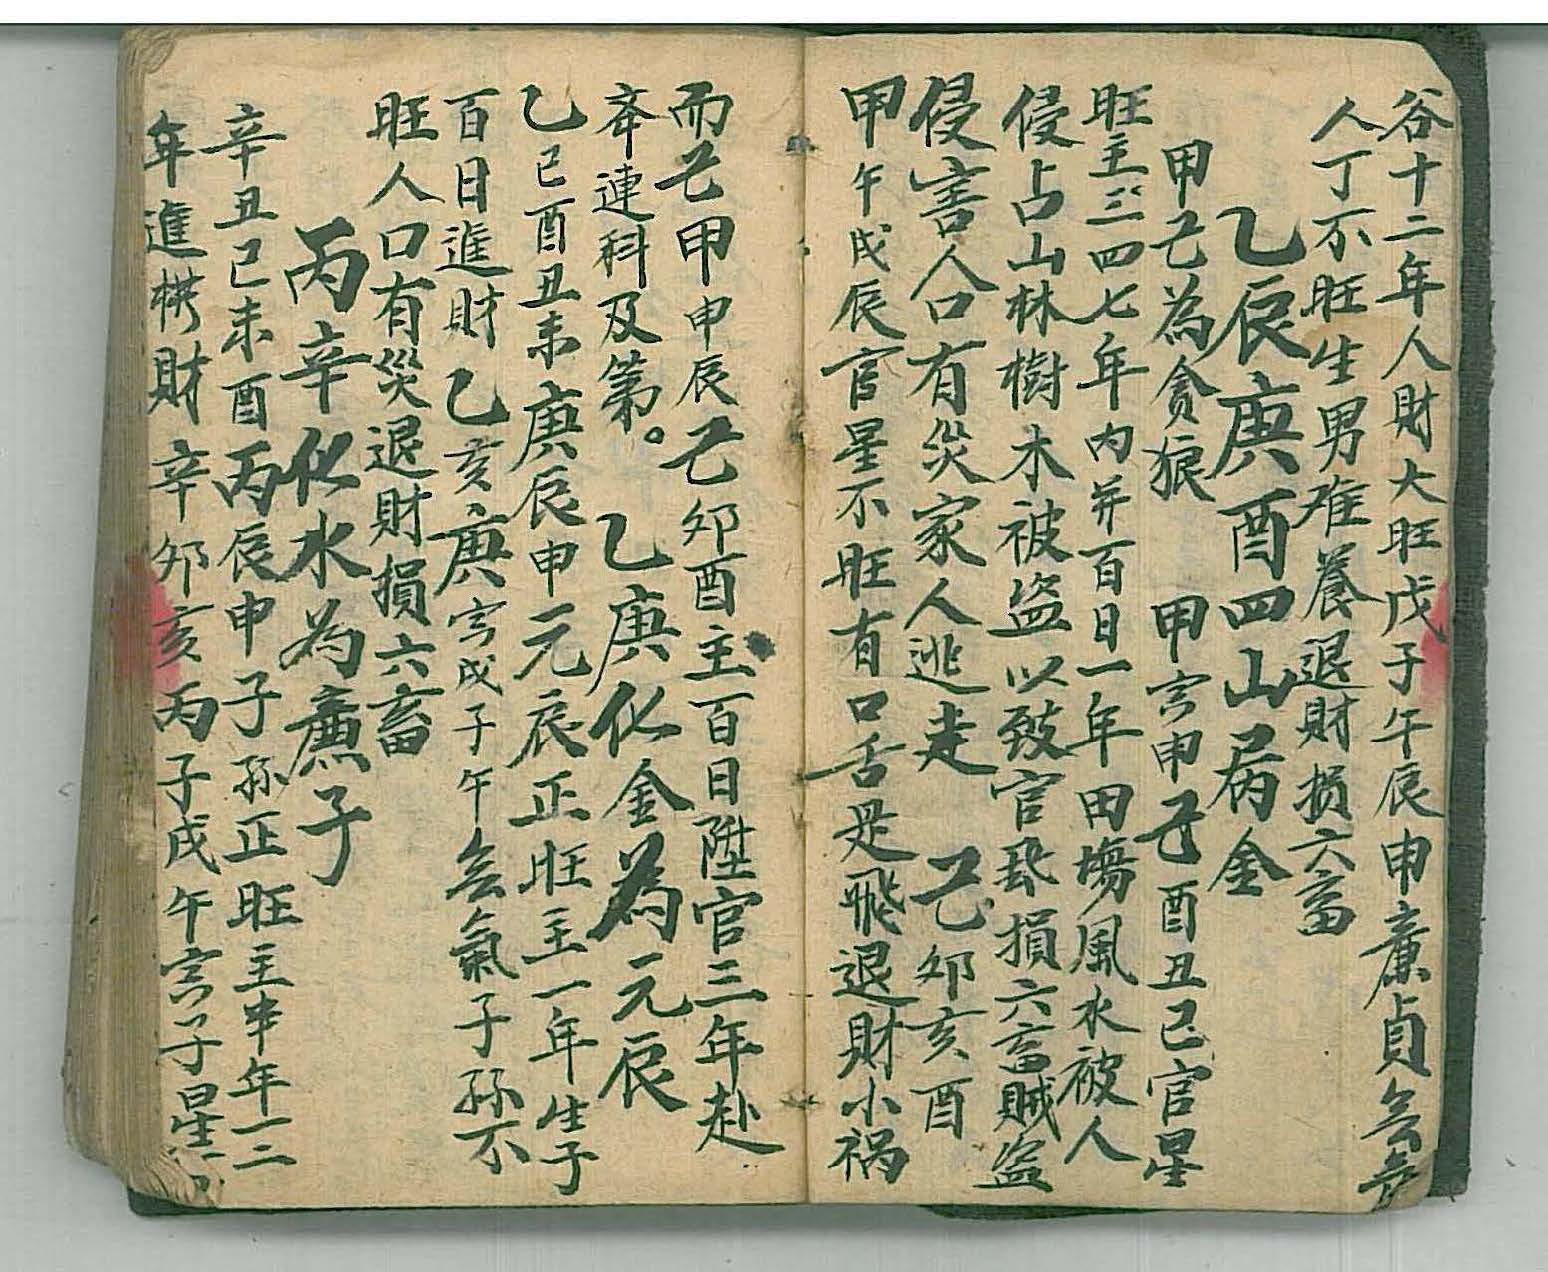 谷十二年人財大旺戊子午辰申廉貞炁
人丁不旺生男难養退財损六畜
乙辰庚酉四山屬金
甲己為貪狼　甲寅申己酉丑巳官星
旺主三四七年内并百日一年田塲風水被人
侵占山林樹木被盜以致官非損六畜賊盜
侵害人口有災家人逃走　己卯亥酉
甲午戌辰官星不旺有口舌是飛退財小祸
而己甲申辰己卯酉主百日陞官三年赴
夲連科及第。乙庚化金為元辰
乙巳酉丑未庚辰申元辰正旺主一年生子
百日進財乙亥庚寅戌子午炁氣子孫不
旺人口有災退財損六畜
丙辛化水為廉子
辛丑巳未酉丙辰申子孫正旺主半年一二
年進横財辛卯亥丙子戌午寅子星